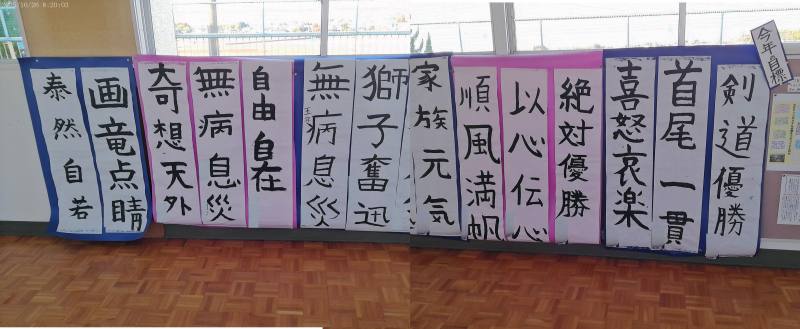 今年目標
剣道優勝
首尾一貫
喜怒哀楽
絶対優勝
以心伝心
順風満帆
家族元気
獅子奮迅
無病息災
自由自在
無病息災
奇想天外
画竜点晴
泰然自若